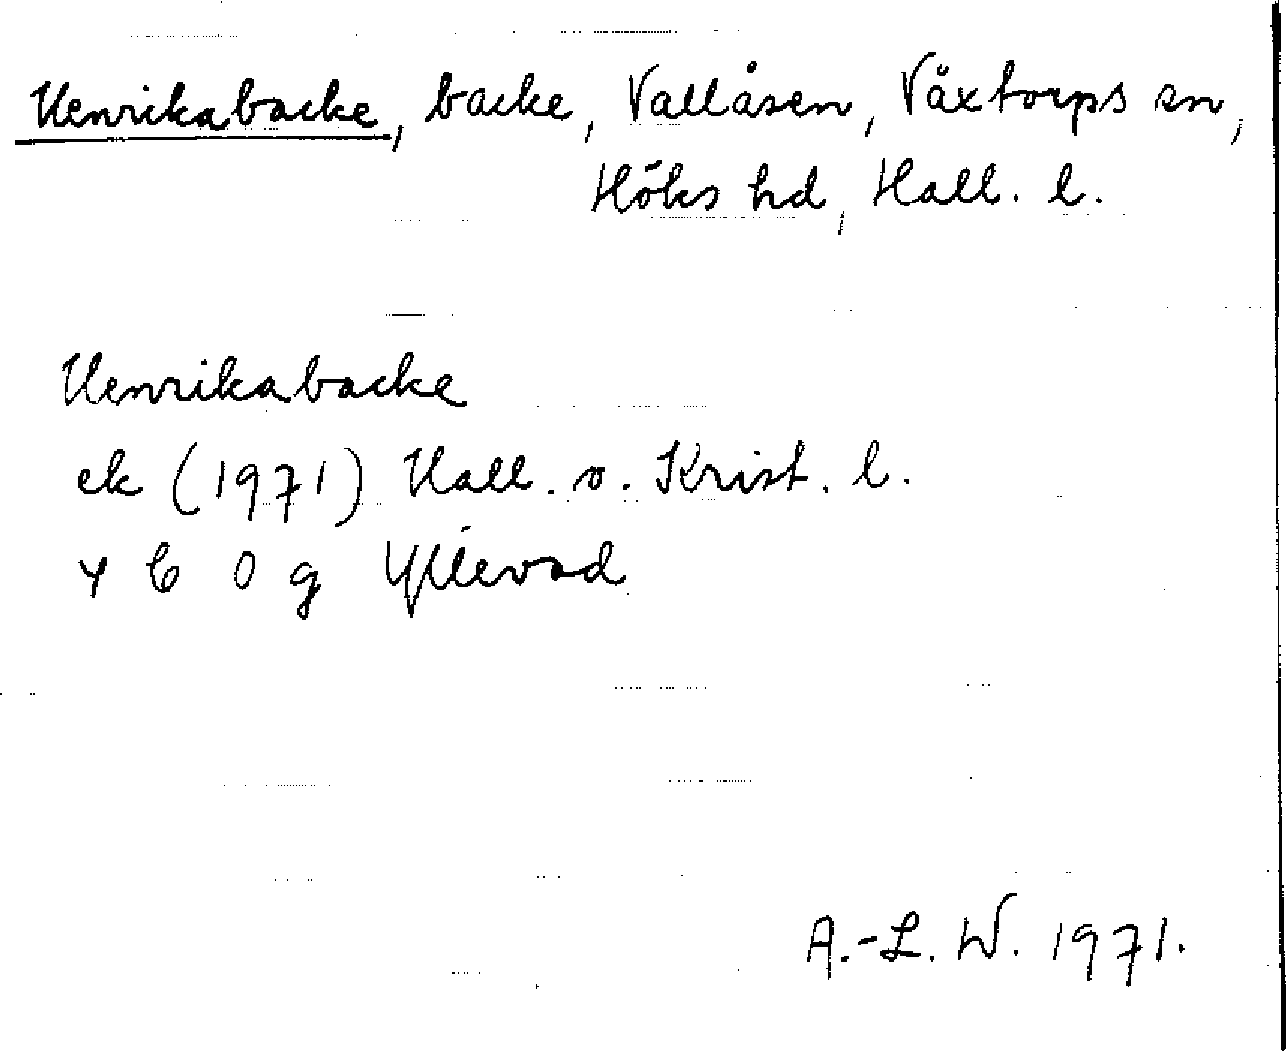 Henrikabacke, backe, Vallåsen, Våxtorps sn,
Höks hd, Hall. l.
Henrikabacke
ek (1971) Hall. o. Krist. l.
4 C 0 g Yllevad
A.-L. W. 1971.